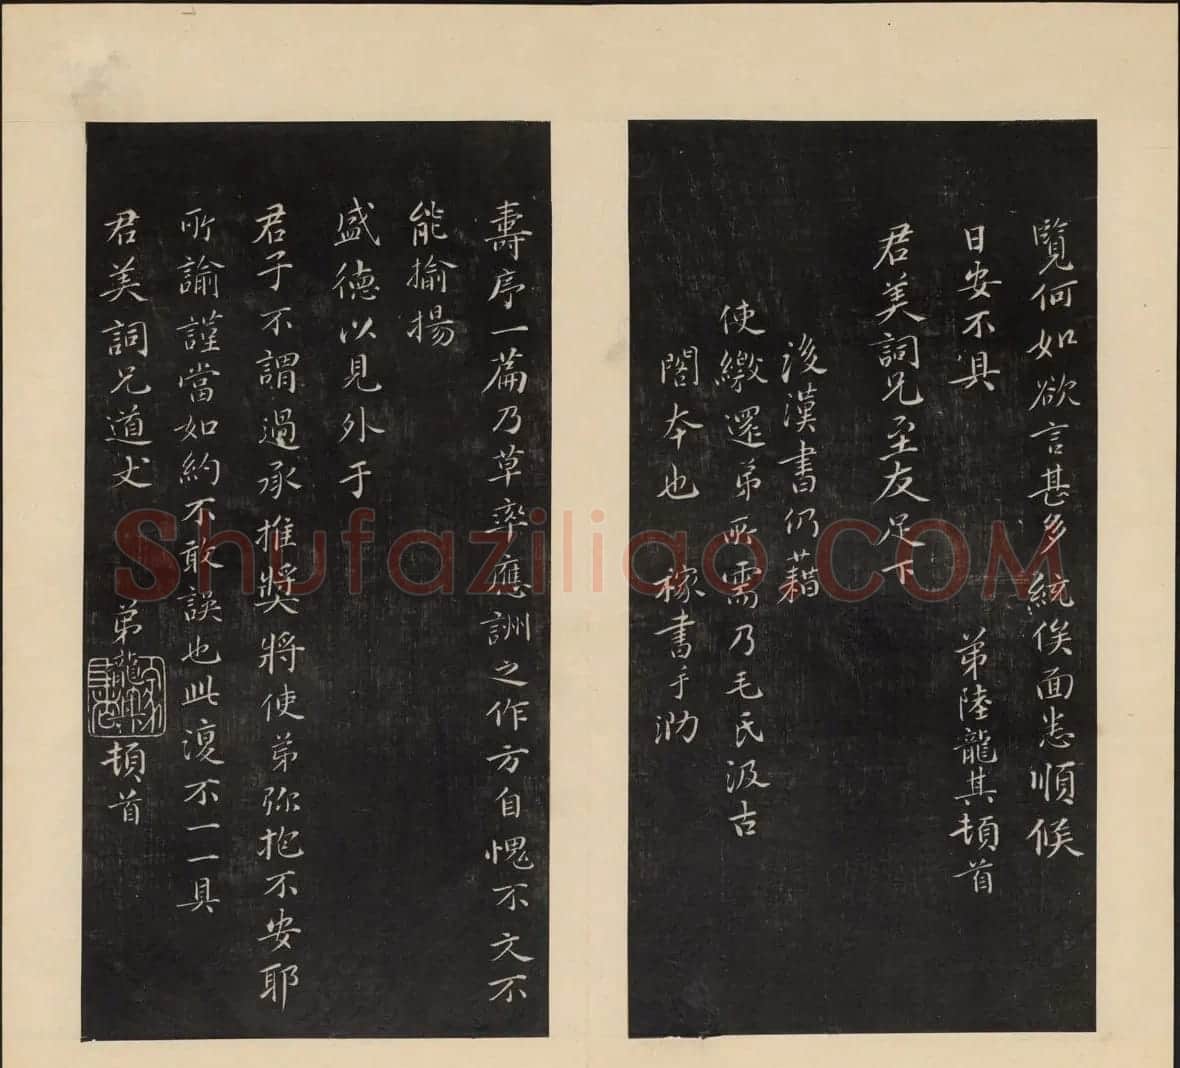 覽何如欲言甚多統俟面悉順候
日安不具
弟陸龍其頓首
君美詞兄至友足下
後漢書仍藉
使繳還弟所需乃毛氏汲古
閣本也 稼書手泐
壽序一篇乃草率應詶之作方自愧不文不
能揄揚
盛德以見外于
君子不謂過承推獎將使弟弥抱不安耶
所諭謹當如約不敢誤也此復不一一具
君美詞兄道丈 弟龍其頓首
Shufaziliao.COM